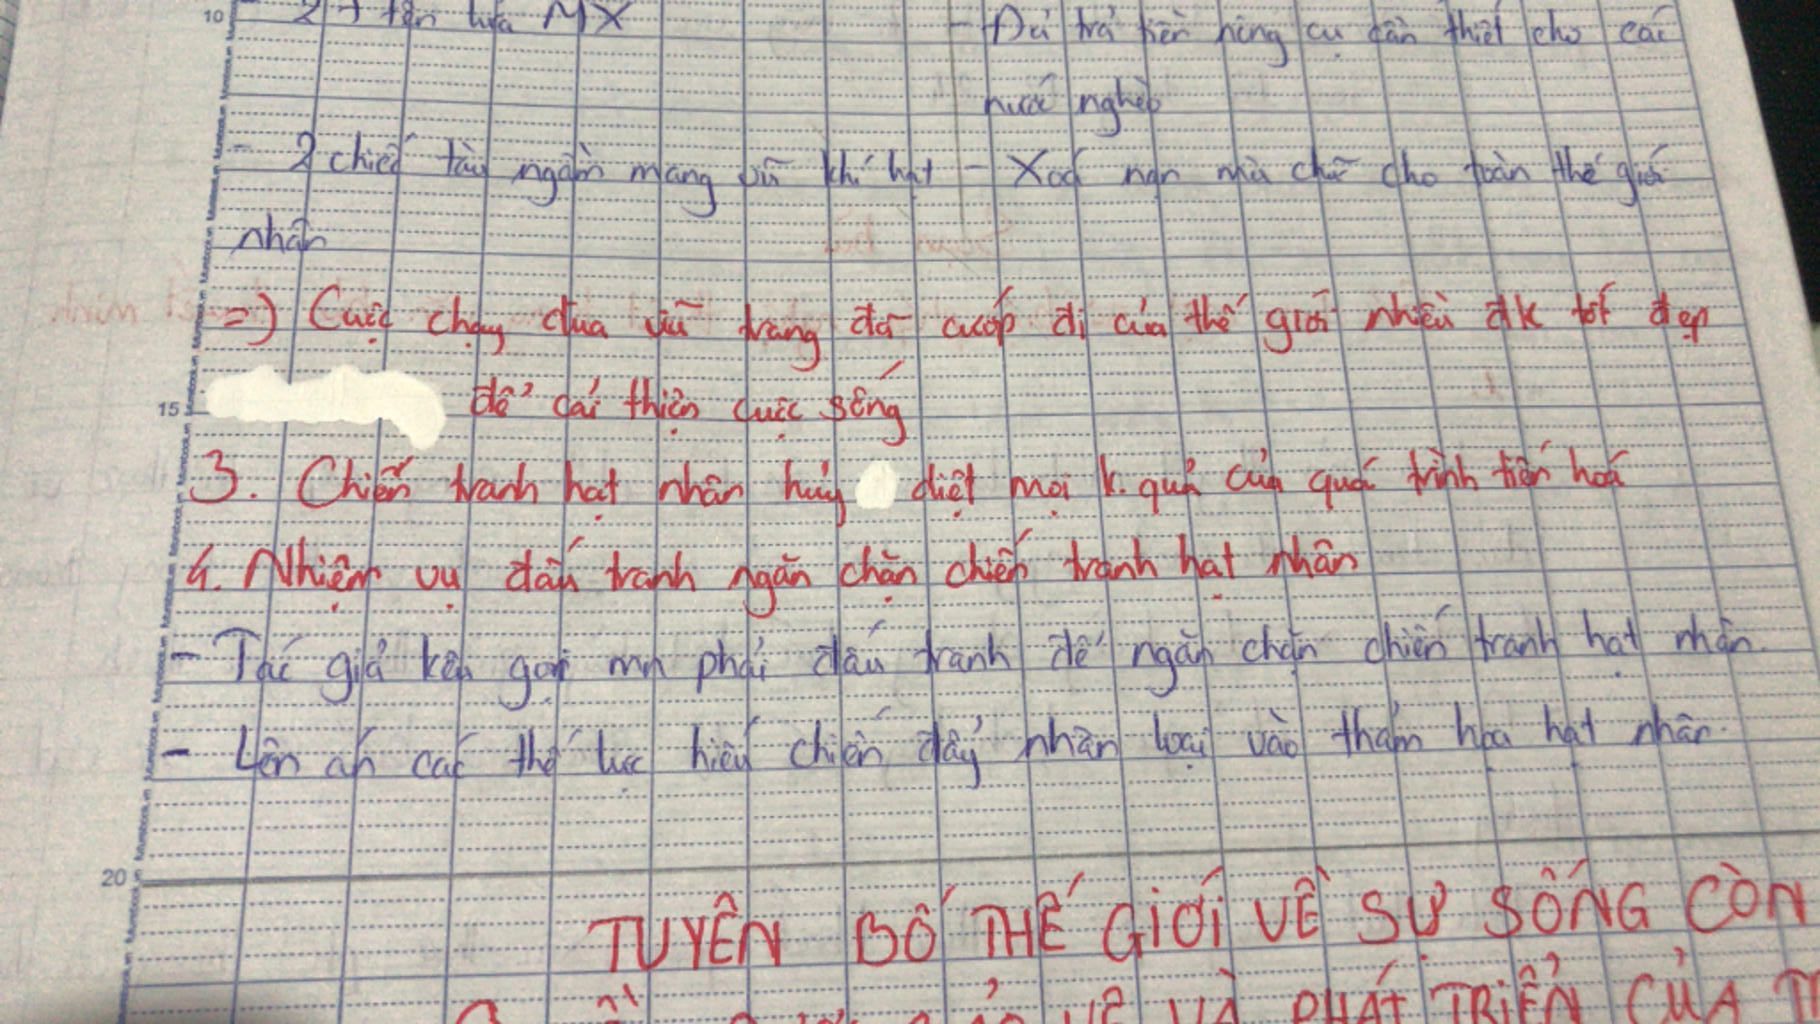 - 27 tên lửa MX - Đủ trả tiền nông cụ cần thiết cho các
nước nghèo
- 2 chiếc tàu ngầm mang vũ khí hạt - Xoá nạn mù chữ cho toàn thế giới
nhân
=> Cuộc chạy đua vũ trang đã cướp đi của thế giới nhiều đk tốt đẹp
15 để cải thiện cuộc sống
3. Chiến tranh hạt nhân hủy diệt mọi k.quả của quá trình tiến hoá
4. Nhiệm vụ đấu tranh ngăn chặn chiến tranh hạt nhân
- Tác giả kêu gọi mn phải đấu tranh để ngăn chặn chiến tranh hạt nhân.
- Lên án các thế lực hiếu chiến đẩy nhân loại vào thảm họa hạt nhân.
20
TUYÊN BỐ THẾ GIỚI VỀ SỰ SỐNG CÒN
VỆ VÀ PHÁT TRIỂN CỦA